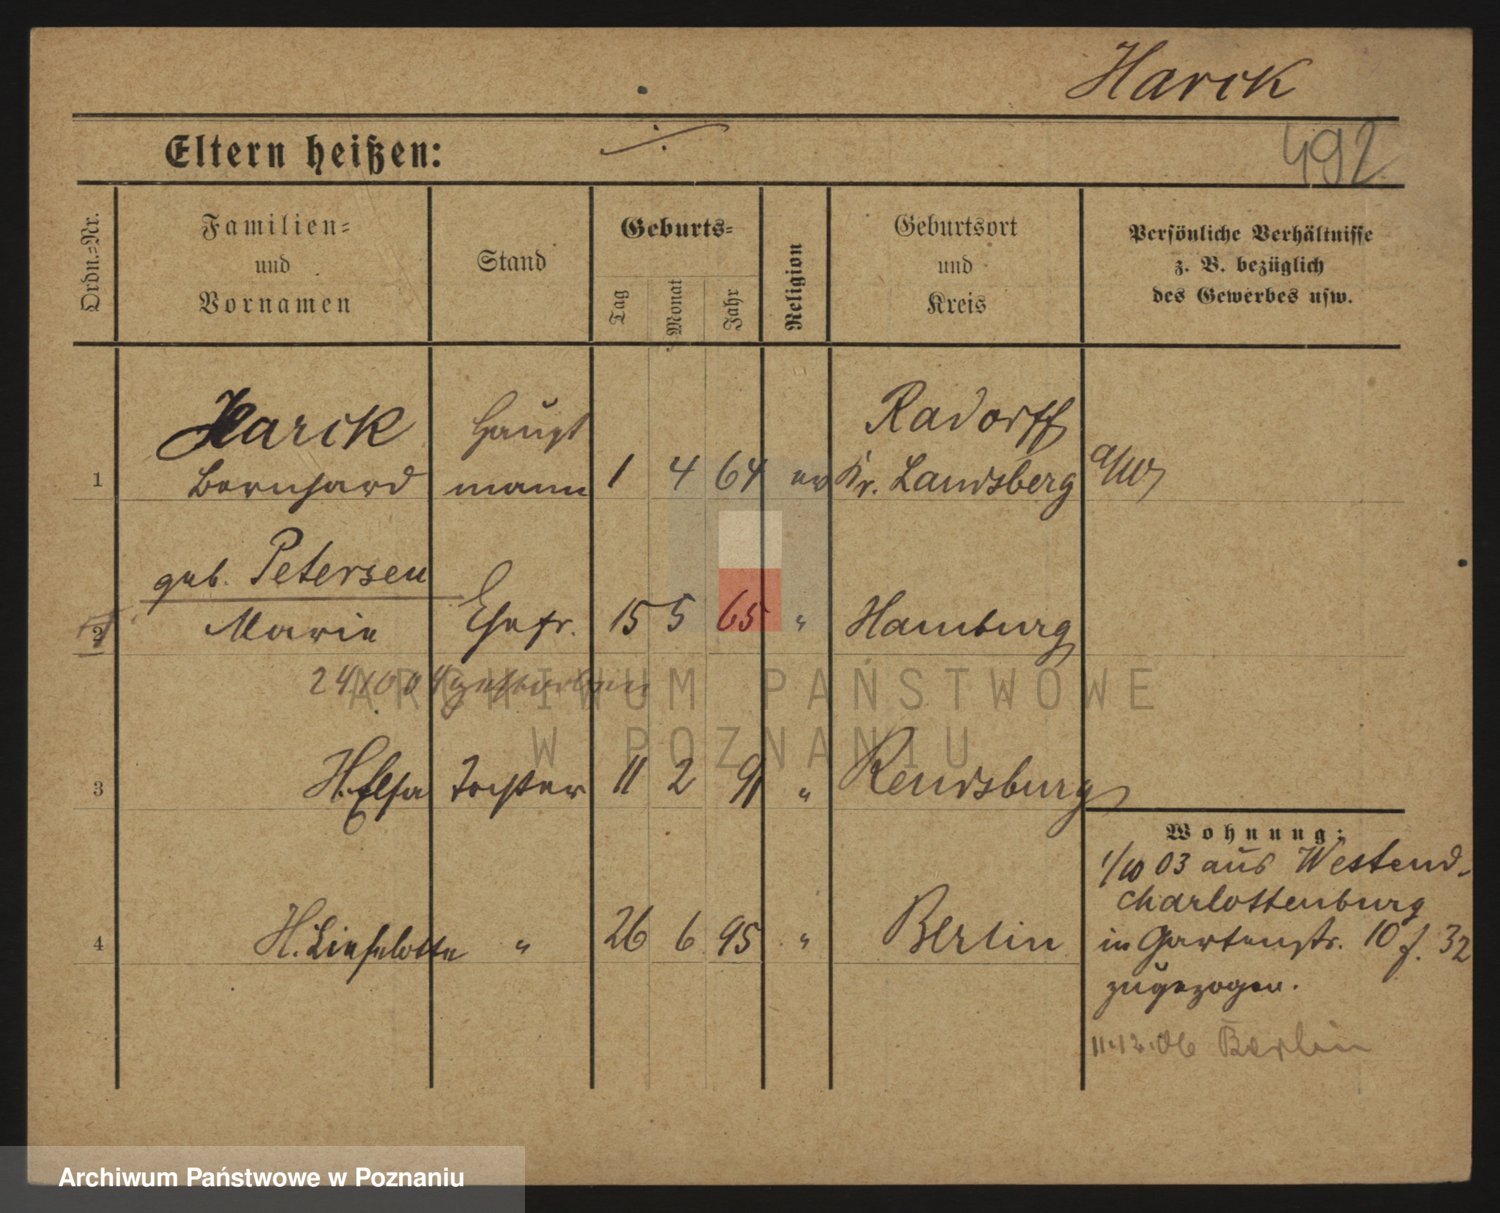 Harck
Eltern heißen: ./.
492
Ordn.=Nr.
Familien=
und
Vornamen
Stand
Geburts=
Tag
Monat
Jahr
Religion
Geburtsort
und
Kreis
Persönliche Verhältnisse
z. B. bezüglich
des Gewerbes usw.
Harck Haupt Radorff
1 Bernhard mann 1 4 64 ev Kr. Landsberg
geb. Petersen
2 Marie Ehefr. 15 5 65 " Hamburg
24/10 04 gestorben
3 H. Elsa Tochter 11 2 91 " Rendsburg
Wohnung:
1/10 03 aus Westend-
Charlottenburg
4 H. Lieselotte " 26 6 95 " Berlin
in Gartenstr. 10 f. 32
zugezogen.
11.12.06 Berlin
ARCHIWUM PAŃSTWOWE
W POZNANIU
Archiwum Państwowe w Poznaniu